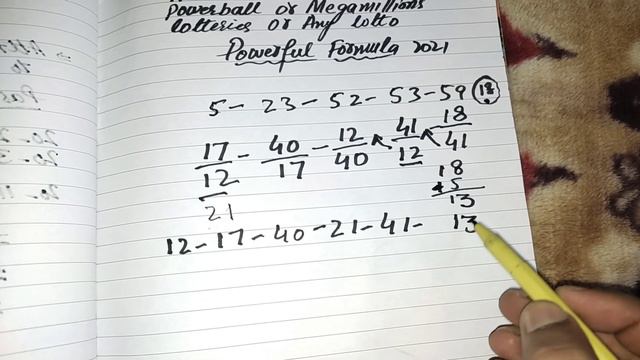 Powerball or Megamillions
Lotteries or Any Lotto
Powerful Formula 2021
5 - 23 - 52 - 53 - 59 (18)
17/12 - 40/17 - 12/40 41/12 18/41
21
18
5
13
12 - 17 - 40 - 21 - 41 - 13
20
20
20